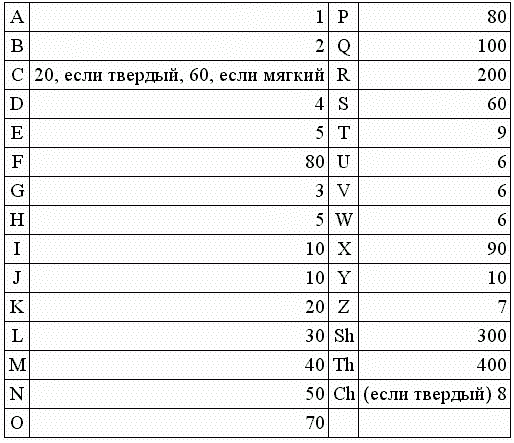 A 1 P 80
B 2 Q 100
C 20, если твердый, 60, если мягкий R 200
D 4 S 60
E 5 T 9
F 80 U 6
G 3 V 6
H 5 W 6
I 10 X 90
J 10 Y 10
K 20 Z 7
L 30 Sh 300
M 40 Th 400
N 50 Ch (если твердый) 8
O 70